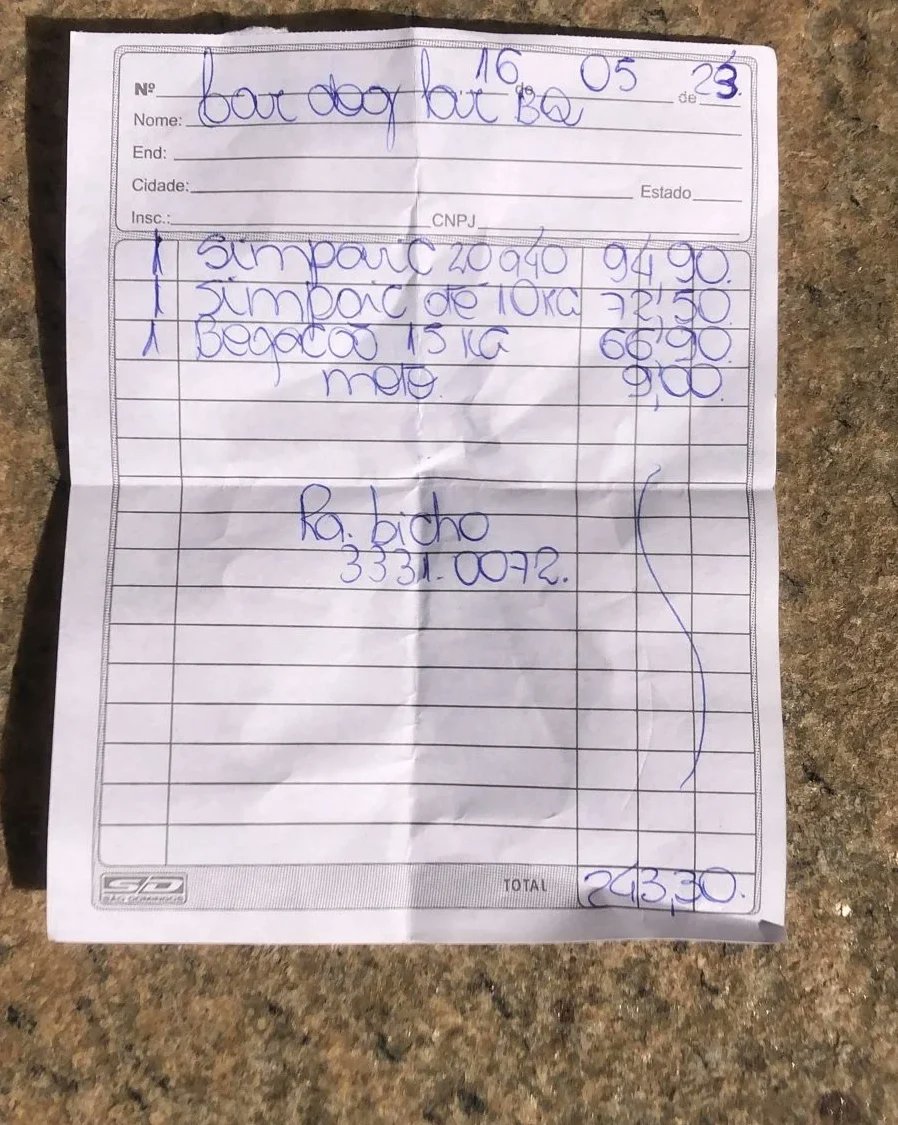 Nº 16 de 05 de 23.
Nome: bar dog bir BQ
End:
Cidade: Estado
Insc.: CNPJ
1 Simparic 20 a 40 94,90.
1 Simpaic de 10 KG 72,50
1 Begocão 15 KG 66,90.
moto. 9,00.
Ra. bicho
3331.0072.
SD TOTAL 243,30.
SÃO DOMINGOS